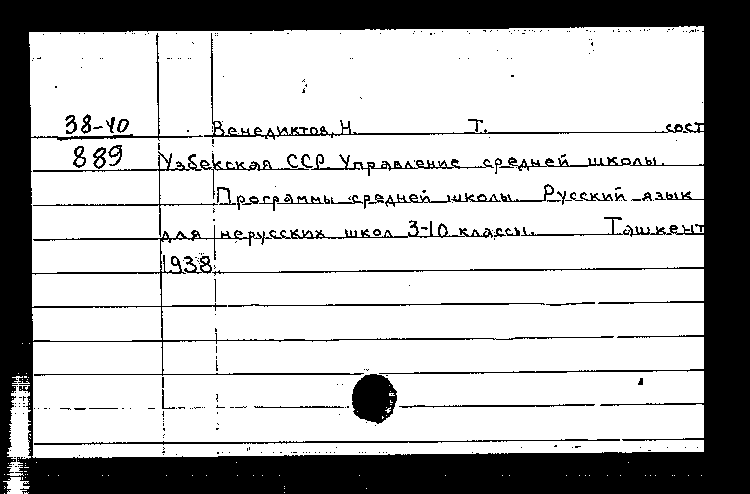 38-40 Венедиктов, Н. Т. сост
889 Узбекская ССР Управление средней школы.
Программы средней школы. Русский язык
для нерусских школ 3-10 классы. Ташкент
1938.